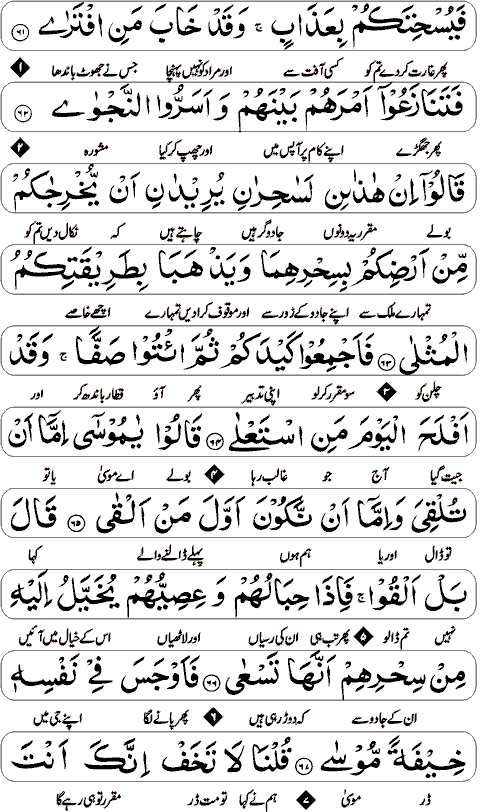 فَيُسْحِتَكُمْ بِعَذَابٍ ۚ وَقَدْ خَابَ مَنِ افْتَرٰى ﴿۶۱﴾
پھر غارت کر دے تم کو کسی آفت سے اور مراد کو نہیں پہنچا جس نے جھوٹ باندھا ۱
فَتَنَازَعُوْٓا اَمْرَهُمْ بَيْنَهُمْ وَ اَسَرُّوا النَّجْوٰى ﴿۶۲﴾
پھر جھگڑے اپنے کام پر آپس میں اور چھپ کر کیا مشورہ ۲
قَالُوْٓا اِنْ هٰذٰىنِ لَسٰحِرٰنِ يُرِيْدٰنِ اَنْ يُّخْرِجٰكُمْ
بولے مقرر یہ دونوں جادوگر ہیں چاہتے ہیں کہ نکال دیں تم کو
مِّنْ اَرْضِكُمْ بِسِحْرِهِمَا وَيَذْهَبَا بِطَرِيْقَتِكُمُ
تمہارے ملک سے اپنے جادو کے زور سے اور موقوف کرا دیں تمہارے اچھے خاصے
الْمُثْلٰى ﴿۶۳﴾ فَاَجْمِعُوْا كَيْدَكُمْ ثُمَّ ائْتُوْا صَفًّا ۚ وَقَدْ
چلن کو ۳ سو مقرر کر لو اپنی تدبیر پھر آؤ قطار باندھ کر اور
اَفْلَحَ الْيَوْمَ مَنِ اسْتَعْلٰى ﴿۶۴﴾ قَالُوْا يٰمُوْسٰٓى اِمَّآ اَنْ
جیت گیا آج جو غالب رہا ۴ بولے اے موسیٰ یا تو
تُلْقِيَ وَاِمَّآ اَنْ نَّكُوْنَ اَوَّلَ مَنْ اَلْقٰى ﴿۶۵﴾ قَالَ
تو ڈال اور یا ہم ہوں پہلے ڈالنے والے کہا
بَلْ اَلْقُوْا ۚ فَاِذَا حِبَالُهُمْ وَعِصِيُّهُمْ يُخَيَّلُ اِلَيْهِ
نہیں تم ڈالو ۵ پھر تب ہی ان کی رسیاں اور لاٹھیاں اس کے خیال میں آئیں
مِنْ سِحْرِهِمْ اَنَّهَا تَسْعٰى ﴿۶۶﴾ فَاَوْجَسَ فِيْ نَفْسِهٖ
ان کے جادو سے کہ دوڑ رہی ہیں ۶ پھر پانے لگا اپنے جی میں
خِيْفَةً مُّوْسٰى ﴿۶۷﴾ قُلْنَا لَا تَخَفْ اِنَّكَ اَنْتَ
ڈر موسیٰ ۷ ہم نے کہا تو مت ڈر مقرر تو ہی رہے گا